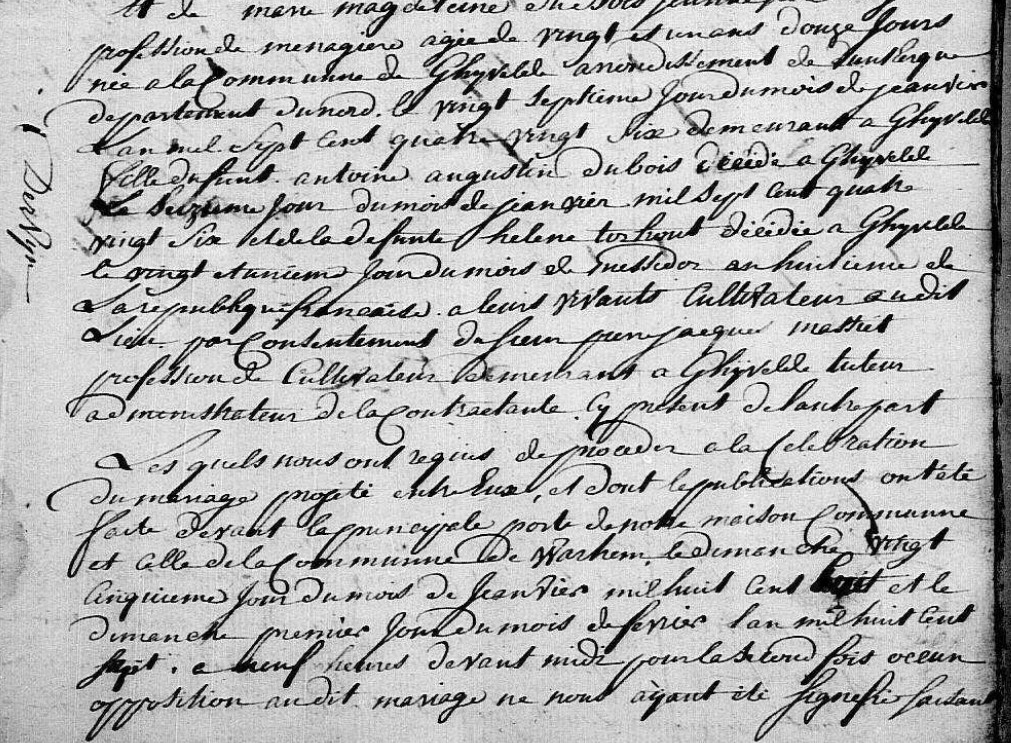 et de marie magdeleine
profession de menagere agée de vingt et un ans douze Jours
née a la Communne de Ghyvelde arrondissement de dunkerque
departement du nord. le vingt septieme Jour du mois de jeanvier
L'an mil sept Cent quatre vingt six demeurant a Ghyvelde
fille du funt antoine augustin dubois décédé a Ghyvelde
le seizieme Jour du mois de jeanvier mil sept Cent quatre
vingt six et de la defunte helene torhout décédée a Ghyvelde
le vingt et unieme Jour du mois de messidor an huitieme de
La republique francaise. a leurs vivants Cultivateur au dit
Lieu par Consentement de sieur pierre jacques
profession de Cultivateur demeurant a Ghyvelde tuteur
administrateur de la Contractante. Cy present de l'autre part
Les quels nous ont requis de proceder a la Celebration
du mariage projeté entre Eux, et dont le publications ont été
faite devant la principale porte de notre maison Communne
et Celle de la Communne de Warhem, le dimanche vingt
Cinquieme Jour du mois de Jeanvier mil huit Cent sept et le
dimanche premier Jour du mois de fevrier l'an mil huit Cent
sept. a neuf heures devant midi pour la second fois occun
opposition au dit mariage ne nous ayant été signefié faisant